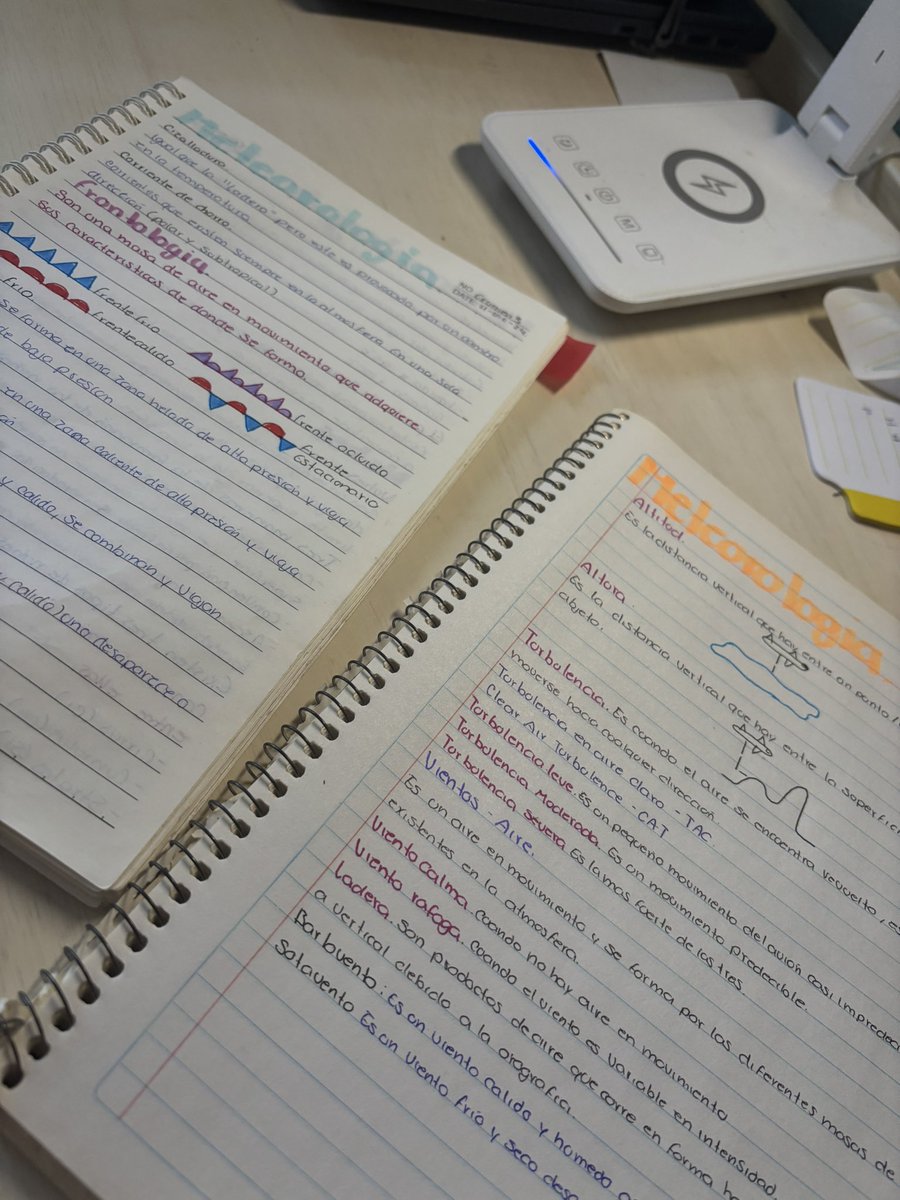 Meteorologia
Cizalladura
igual que la "ladera" pero este es provocado por un cambio
en la temperatura
Corriente de chorro
corrientes que existen siempre en la atmosfera en una sola
dirección (polar y subtropical)
Frontologia
Son una masa de aire en movimiento que adquiere
sus características de donde se forma.
frente frio
frente calido
frente ocluido
frente
Estacionario
frio
se forma en una zona helada de alta presión y viaja
de baja presión
en una zona caliente de alta presión y viaja
y calido, se combinan y viajan
calido) una desaparicera
NO.
DATE
Meteorologia
Altitud.
Es la distancia vertical que hay entre un punto
Altura.
Es la distancia vertical que hay entre la superfici
objeto.
Turbolencia. Es cuando el aire se encuentra revuelto, es
moverse hacia cualquier dirección
Turbolencia en aire claro - TAC
Clear Air Turbolence - CAT
Turbolencia leve. Es un pequeño movimiento del avión casi impredeci
Turbolencia Moderada. Es un movimiento predecible.
Turbolencia severa Es la mas fuerte de las tres
Vientos - Aire.
Es un aire en movimiento y se forma por las diferentes masas de
existentes en la atmosfera.
Viento calma. cuando no hay aire en movimiento
Viento rafaga. cuando el viento es variable en intensidad
Ladera. Son productos de aire que corre en forma h
a vertical debido a la orografici.
Barbuento: Es un viento calido y humedo
Sotavento Es un viento frío y seco desc